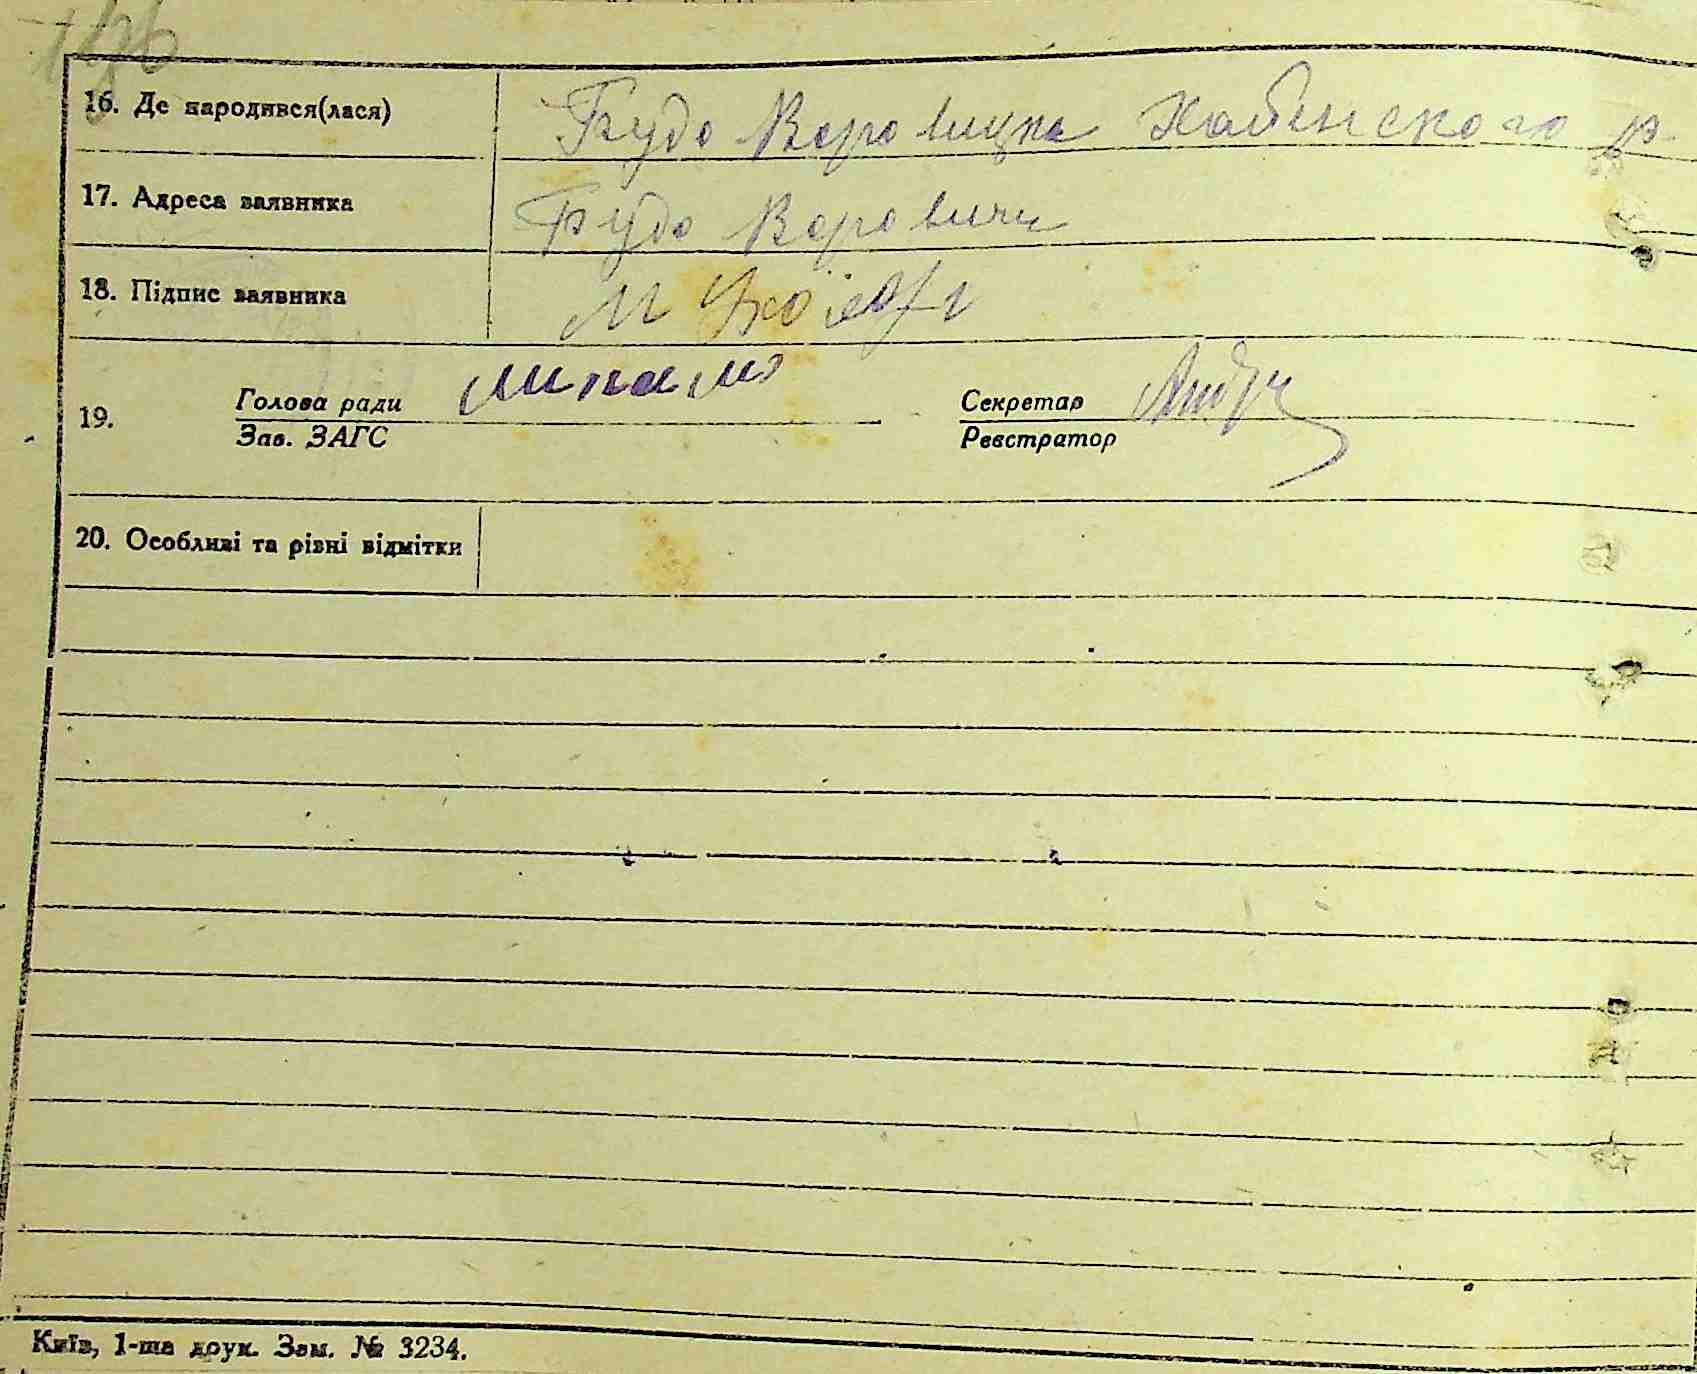 16. Де народився(лася) Буда Варовицка Хабенского р.
17. Адреса заявника Буда Варовичи
18. Підпис заявника
19. Голова ради Секретар
Зав. ЗАГС Реєстратор
20. Особливі та різні відмітки
Київ, 1-ша друк. Зам. № 3234.